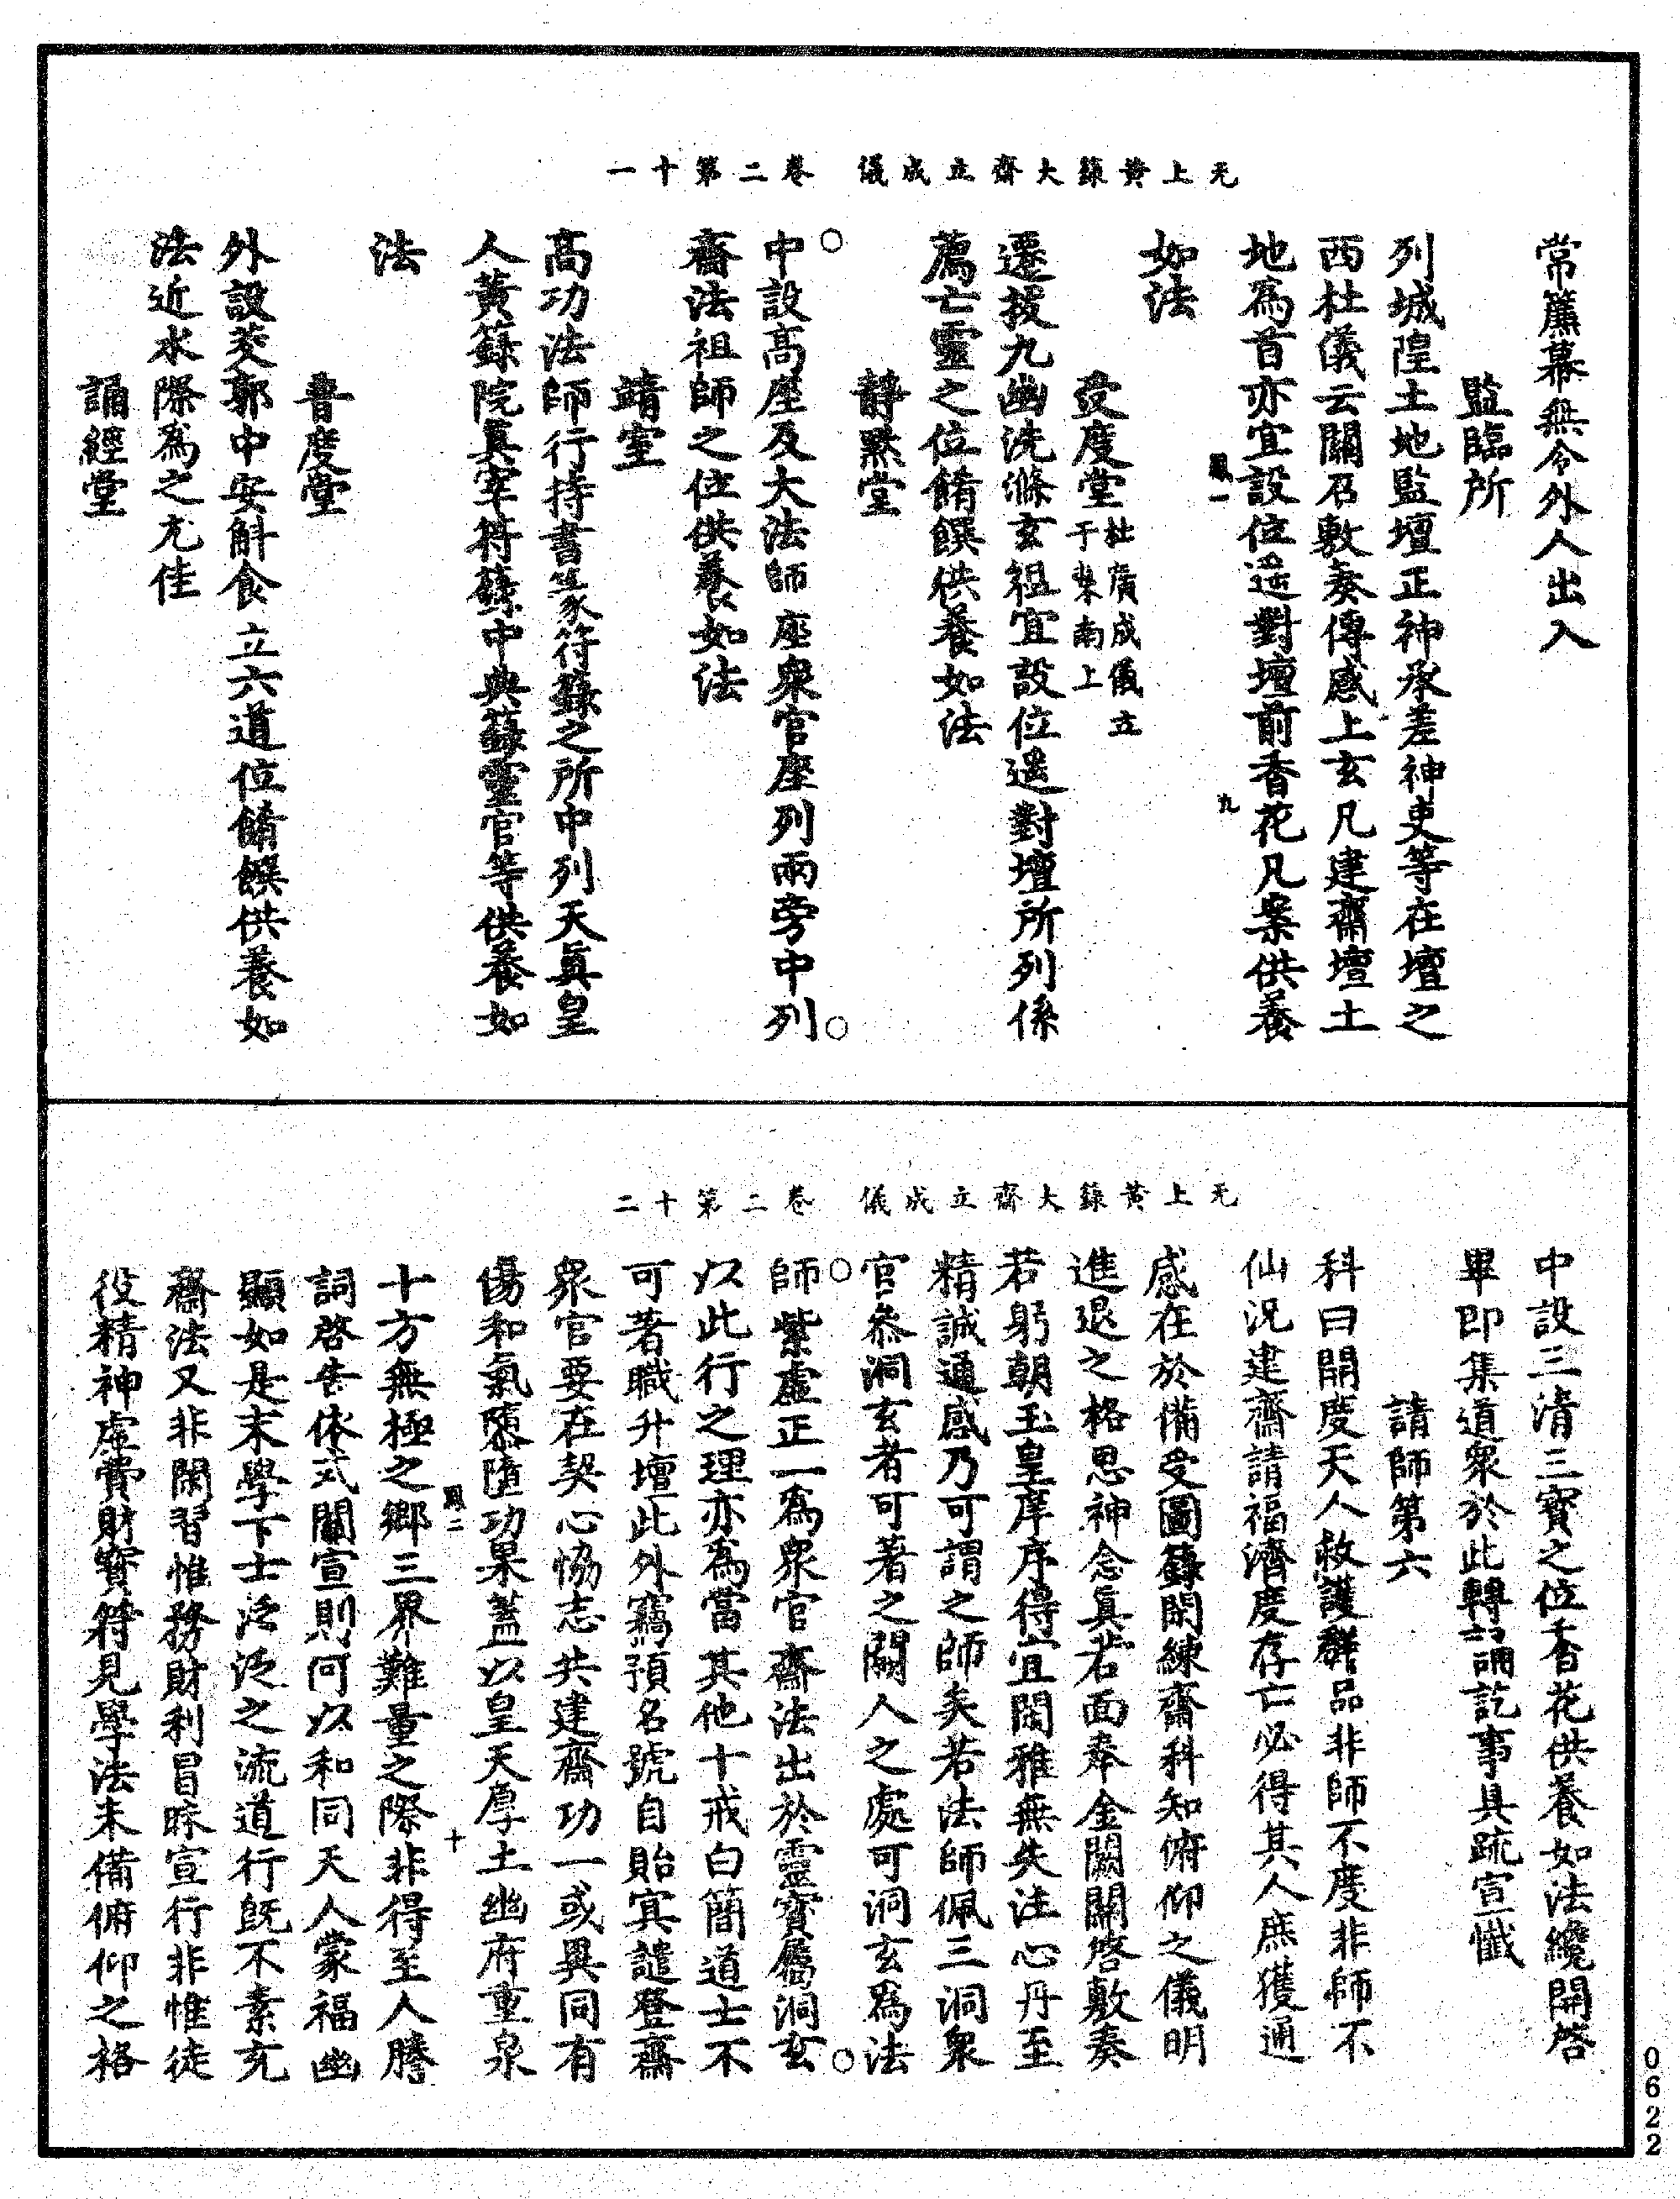 无上黃籙大齋立成儀 卷二第十一
常簾幕無令外人出入
監臨所
列城隍土地監壇正神承差神吏等在壇之
西杜儀云關召敷奏傳感上玄凡建齋壇土
地為首亦宜設位遥對壇前香花凡案供養
鳳一 九
如法
受度堂杜廣成儀立于壇南上
遷拔九幽洗滌玄祖宜設位遥對壇所列係
薦亡靈之位餚饌供養如法
靜默堂
中設高座及大法師座衆官座列兩旁中列
齋法祖師之位供養如法
靖室
高功法師行持書篆符籙之所中列天真皇
人黃籙院真宰符籙中典籙靈官等供養如
法
普度堂
外設茭郭中安斛食立六道位餚饌供養如
法近水際為之尤佳
誦經堂
无上黃籙大齋立成儀 卷二第十二
中設三清三寶之位香花供養如法纔開啓
畢即集道衆於此轉誦訖事具疏宣懺
請師第六
科曰開度天人救護群品非師不度非師不
仙況建齋請福濟度存亡必得其人庶獲通
感在於備受圖籙閑練齋科知俯仰之儀明
進退之格思神念真若面奉金闕關啓敷奏
若躬朝玉皇庠序得宜閑雅無失注心丹至
精誠通感乃可謂之師矣若法師佩三洞衆
官叅洞玄者可著之闕人之處可洞玄為法
師紫虛正一為衆官齋法出於靈寶屬洞玄
以此行之理亦為當其他十戒白簡道士不
可著職升壇此外竊預名號自貽冥譴登齋
衆官要在契心恊志共建齋功一或異同有
傷和氣隳墮功果蓋以皇天厚土幽府重泉
鳳二 十
十方無極之鄉三界難量之際非得至人騰
詞啓告依式關宣則何以和同天人蒙福幽
顯如是末學下士泛泛之流道行既不素充
齋法又非閑習惟務財利冒昧宣行非惟徒
役精神虛費財寶符見學法未備俯仰之格
0622